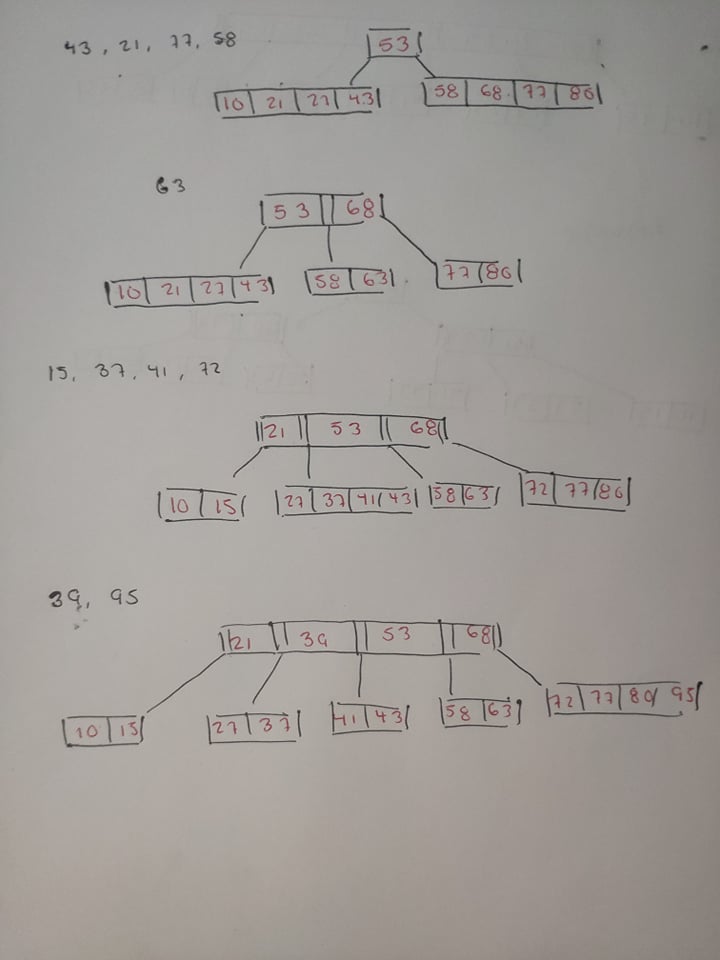 43, 21, 77, 58
53
10 21 27 43 58 68 77 86
63
53 68
10 21 27 43 58 63 77 86
15, 37, 41, 72
21 53 68
10 15 27 37 41 43 58 63 72 77 86
39, 95
21 39 53 68
10 15 27 37 41 43 58 63 72 77 80 95